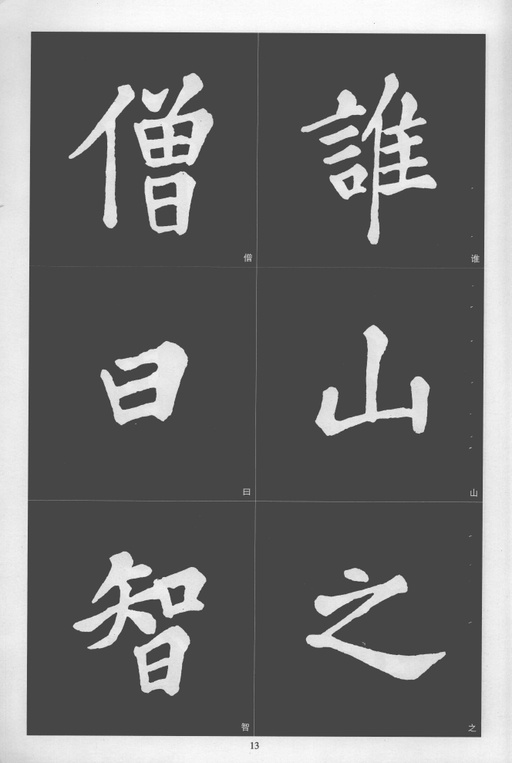 誰山之
谁
山
之
僧曰智
僧
曰
智
13